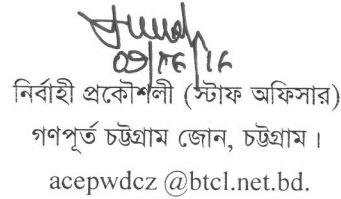 নির্বাহী প্রকৌশলী (স্টাফ অফিসার)
গণপূর্ত চট্টগ্রাম জোন, চট্টগ্রাম।
acepwdcz @btcl.net.bd.